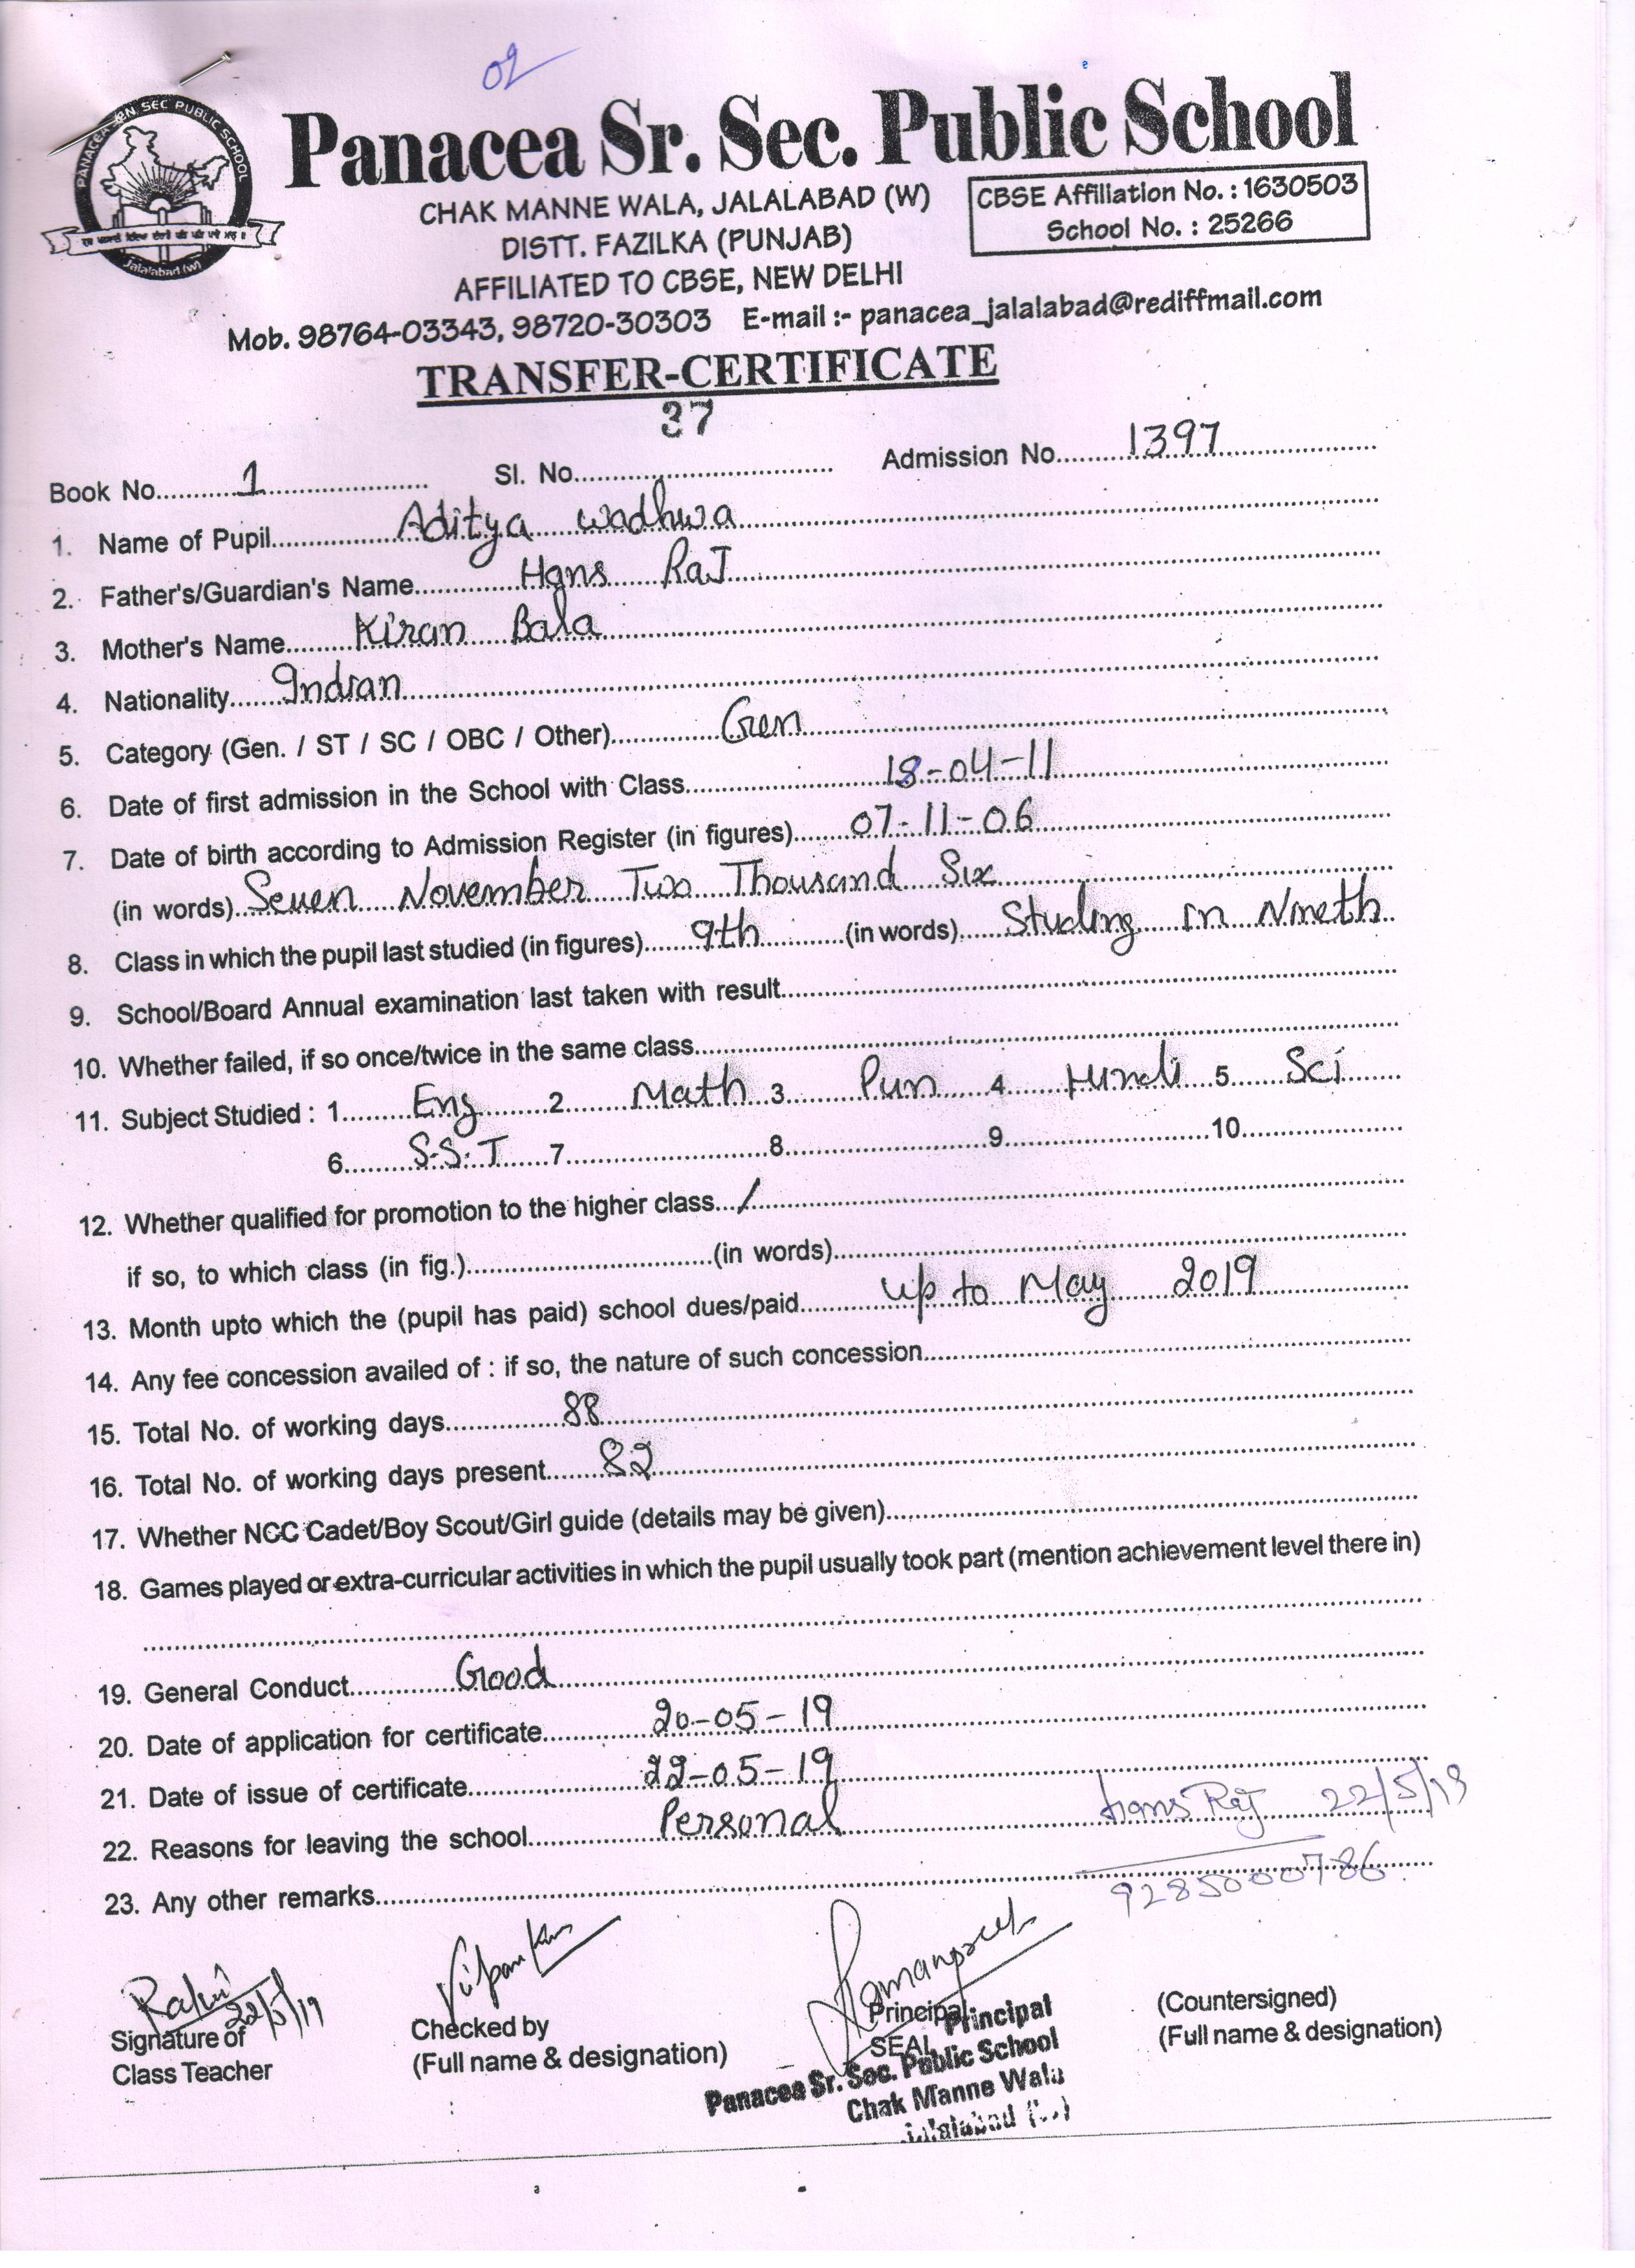 02
PANACEA SEC PUBLIC SCHOOL
Jalalabad (W)
Panacea Sr. Sec. Public School
CHAK MANNE WALA, JALALABAD (W)
DISTT. FAZILKA (PUNJAB)
AFFILIATED TO CBSE, NEW DELHI
CBSE Affiliation No. : 1630503
School No. : 25266
Mob. 98764-03343, 98720-30303 E-mail :- panacea_jalalabad@rediffmail.com
TRANSFER-CERTIFICATE
37
Book No. 1 Sl. No. Admission No. 1397
1. Name of Pupil Aditya Wadhwa
2. Father's/Guardian's Name Hans RaJ
3. Mother's Name Kiran Bala
4. Nationality Indian
5. Category (Gen. / ST / SC / OBC / Other) Gen
6. Date of first admission in the School with Class 18-04-11
7. Date of birth according to Admission Register (in figures) 07-11-06
(in words) Seven November Two Thousand Six
8. Class in which the pupil last studied (in figures) 9th (in words) Studing in Nineth
9. School/Board Annual examination last taken with result
10. Whether failed, if so once/twice in the same class
11. Subject Studied : 1 Eng 2 Math 3 Pun 4 Hindi 5 Sci
6 S.S.T 7 8 9 10
12. Whether qualified for promotion to the higher class /
if so, to which class (in fig.) (in words)
13. Month upto which the (pupil has paid) school dues/paid up to May 2019
14. Any fee concession availed of : if so, the nature of such concession
15. Total No. of working days 88
16. Total No. of working days present 82
17. Whether NCC Cadet/Boy Scout/Girl guide (details may be given)
18. Games played or extra-curricular activities in which the pupil usually took part (mention achievement level there in)
19. General Conduct Good
20. Date of application for certificate 20-05-19
21. Date of issue of certificate 22-05-19
22. Reasons for leaving the school Personal Hans Raj 22/5/19
23. Any other remarks 9285000786
Rahi 22/5/19
Signature of
Class Teacher
Checked by
(Full name & designation)
Ramanpreet
Principal
SEAL
Principal
Panacea Sr. Sec. Public School
Chak Manne Wala
Jalalabad (W)
(Countersigned)
(Full name & designation)